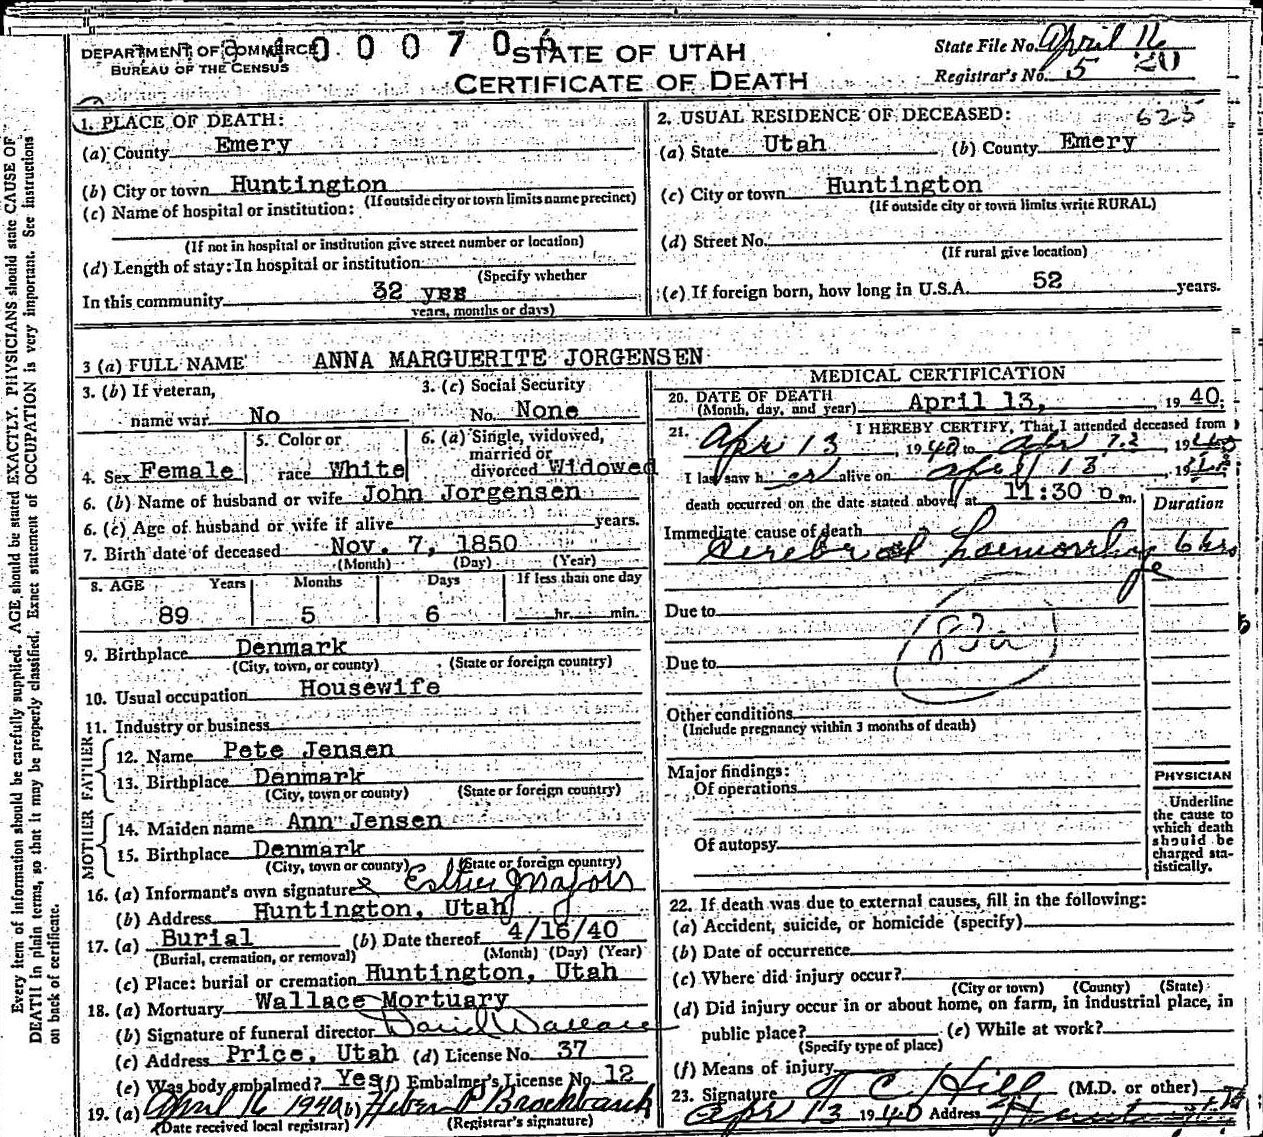 DEPARTMENT OF COMMERCE
BUREAU OF THE CENSUS
STATE OF UTAH
CERTIFICATE OF DEATH
State File No. April 16
Registrar's No. 5 20
1. PLACE OF DEATH:
(a) County Emery
(b) City or town Huntington
(If outside city or town limits name precinct)
(c) Name of hospital or institution:
(If not in hospital or institution give street number or location)
(d) Length of stay: In hospital or institution
(Specify whether
In this community 32 yrs
years, months or days)
2. USUAL RESIDENCE OF DECEASED: 625
(a) State Utah (b) County Emery
(c) City or town Huntington
(If outside city or town limits write RURAL)
(d) Street No.
(If rural give location)
(e) If foreign born, how long in U.S.A. 52 years.
3 (a) FULL NAME ANNA MARGUERITE JORGENSEN
3. (b) If veteran,
name war No
3. (c) Social Security
No. None
4. Sex Female
5. Color or
race White
6. (a) Single, widowed,
married or
divorced Widowed
6. (b) Name of husband or wife John Jorgensen
6. (c) Age of husband or wife if alive years.
7. Birth date of deceased Nov. 7, 1850
(Month) (Day) (Year)
8. AGE Years Months Days If less than one day
89 5 6 hr. min.
9. Birthplace Denmark
(City, town, or county) (State or foreign country)
10. Usual occupation Housewife
11. Industry or business
FATHER
12. Name Pete Jensen
13. Birthplace Denmark
(City, town or county) (State or foreign country)
MOTHER
14. Maiden name Ann Jensen
15. Birthplace Denmark
(City, town or county) (State or foreign country)
16. (a) Informant's own signature Esther Majors
(b) Address Huntington, Utah
17. (a) Burial (b) Date thereof 4/16/40
(Burial, cremation, or removal) (Month) (Day) (Year)
(c) Place: burial or cremation Huntington, Utah
18. (a) Mortuary Wallace Mortuary
(b) Signature of funeral director David Wallace
(c) Address Price, Utah (d) License No. 37
(e) Was body embalmed? Yes (f) Embalmer's License No. 12
19. (a) April 16 1940 (b) Heber P Brockbank
(Date received local registrar) (Registrar's signature)
MEDICAL CERTIFICATION
20. DATE OF DEATH
(Month, day, and year) April 13, 1940;
21. I HEREBY CERTIFY, That I attended deceased from
Apr 13, 1940 to Apr 19
I last saw her alive on April 13 19
death occurred on the date stated above, at 11:30 p m.
Duration
Immediate cause of death
Cerebral haemorrhage 6 hrs
Due to
Due to
Other conditions
(Include pregnancy within 3 months of death)
Major findings:
Of operations
Of autopsy
PHYSICIAN
Underline
the cause to
which death
should be
charged sta-
tistically.
22. If death was due to external causes, fill in the following:
(a) Accident, suicide, or homicide (specify)
(b) Date of occurrence
(c) Where did injury occur?
(City or town) (County) (State)
(d) Did injury occur in or about home, on farm, in industrial place, in
public place? (e) While at work?
(Specify type of place)
(f) Means of injury
23. Signature T C Hill (M.D. or other)
Apr 13 1940 Address
Every item of information should be carefully supplied. AGE should be stated EXACTLY. PHYSICIANS should state CAUSE OF
DEATH in plain terms, so that it may be properly classified. Exact statement of OCCUPATION is very important. See instructions
on back of certificate.